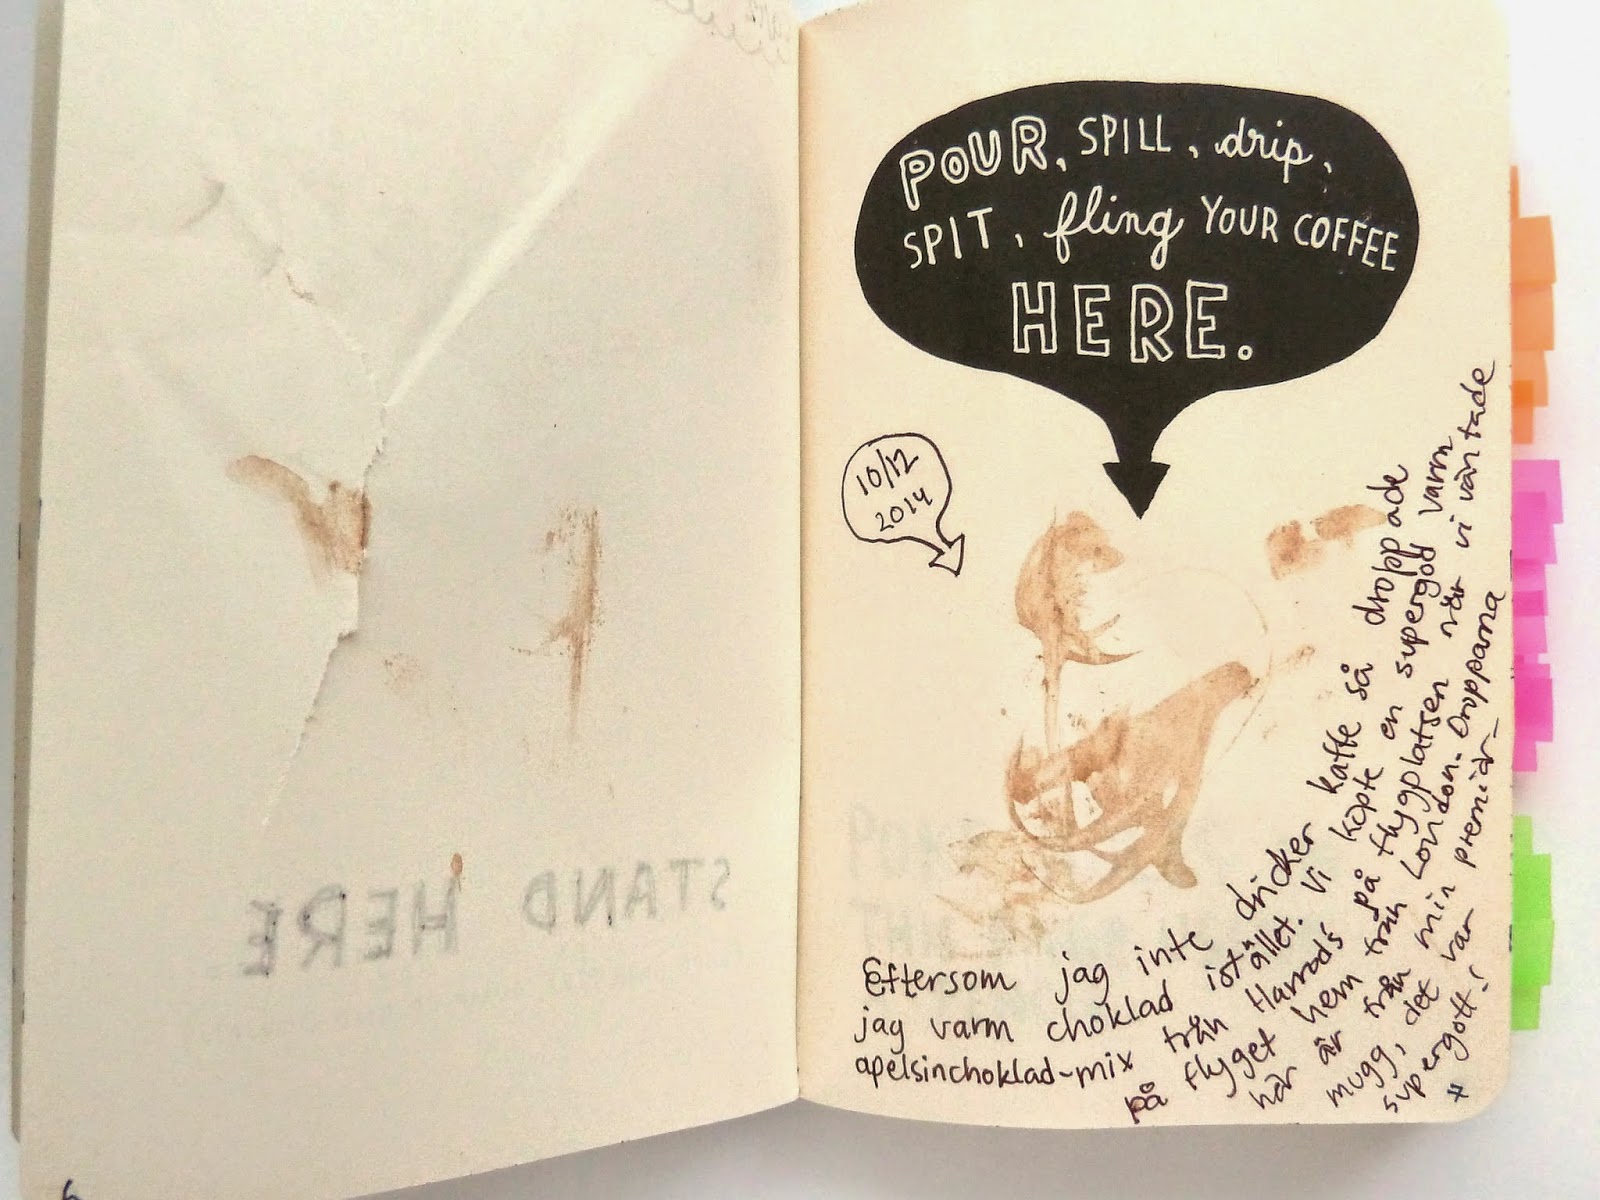 STAND HERE
POUR, SPILL, drip,
SPIT, fling YOUR COFFEE
HERE.
10/12
2014
Eftersom jag inte dricker kaffe så droppade
jag varm choklad istället. Vi köpte en supergod varm
apelsinchoklad-mix från Harrods på flygplatsen när vi väntade
på flyget hem från London. Dropparna
här är från min premiär-
mugg, det var
supergott!
x